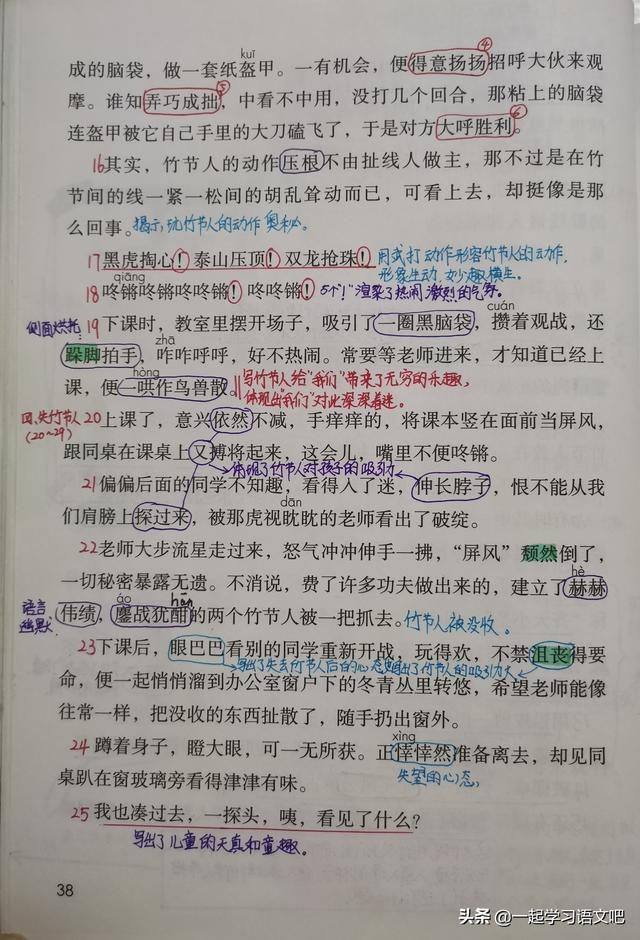 kuī
成的脑袋，做一套纸盔甲。一有机会，便得意扬扬④招呼大伙来观
摩。谁知弄巧成拙⑤，中看不中用，没打几个回合，那粘上的脑袋
连盔甲被它自己手里的大刀磕飞了，于是对方大呼胜利⑥。
16其实，竹节人的动作压根不由扯线人做主，那不过是在竹
节间的线一紧一松间的胡乱耸动而已，可看上去，却挺像是那
么回事。揭示玩竹节人的动作奥秘。
17黑虎掏心！泰山压顶！双龙抢珠！用武打动作形容竹节人的动作，
形象生动，妙趣横生。
qiāng
18咚锵咚锵咚咚锵！咚咚锵！5个"！"渲染了热闹、激烈的气氛。
cuán
侧面烘托：19下课时，教室里摆开场子，吸引了一圈黑脑袋，攒着观战，还
zhā
跺脚拍手，咋咋呼呼，好不热闹。常要等老师进来，才知道已经上
hòng
课，便一哄作鸟兽散。写竹节人给"我们"带来了无穷的乐趣，
体现出"我们"对此深深着迷。
四、失竹节人20上课了，意兴依然不减，手痒痒的，将课本竖在面前当屏风，
(20~29)
跟同桌在课桌上又搏将起来，这会儿，嘴里不便咚锵。
体现了竹节人对孩子的吸引力
21偏偏后面的同学不知趣，看得入了迷，伸长脖子，恨不能从我
dān
们肩膀上探过来，被那虎视眈眈的老师看出了破绽。
22老师大步流星走过来，怒气冲冲伸手一拂，“屏风”颓然倒了，
hè
一切秘密暴露无遗。不消说，费了许多功夫做出来的，建立了赫赫
语言
幽默
áo hān
伟绩，鏖战犹酣的两个竹节人被一把抓去。竹节人被没收。
23下课后，眼巴巴看别的同学重新开战，玩得欢，不禁沮丧得要
写出了失去竹节人后的心态，写出了竹节人的吸引力大
命，便一起悄悄溜到办公室窗户下的冬青丛里转悠，希望老师能像
往常一样，把没收的东西扯散了，随手扔出窗外。
xìng
24蹲着身子，瞪大眼，可一无所获。正悻悻然准备离去，却见同
失望的心态，
桌趴在窗玻璃旁看得津津有味。
25我也凑过去，一探头，咦，看见了什么？
写出了儿童的天真和童趣。
38
头条 @一起学习语文吧